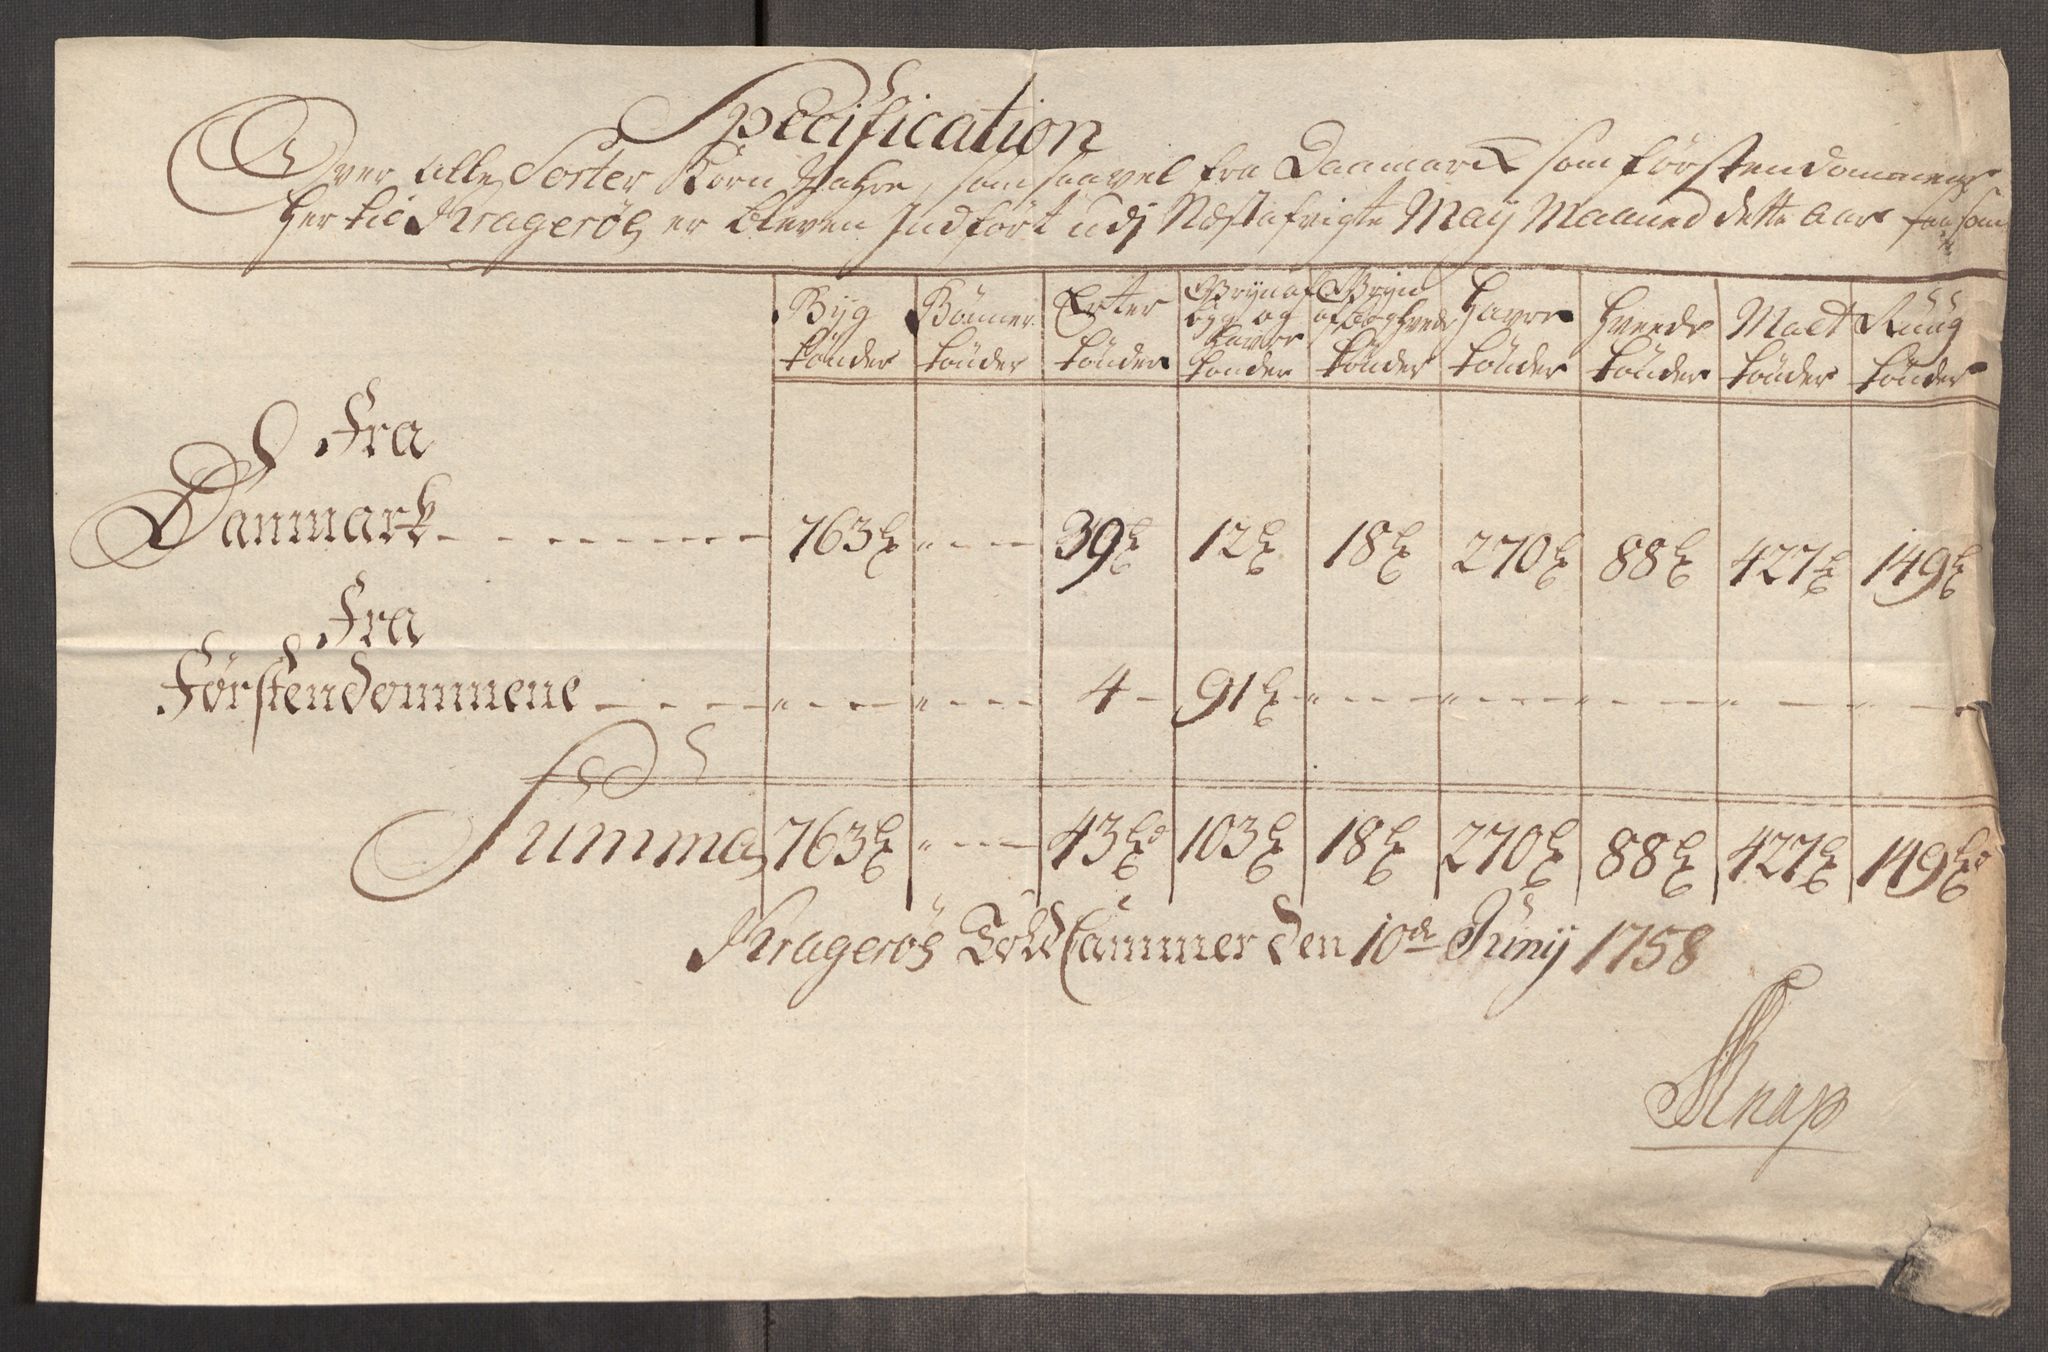 Specification
Over alle Sorter Korn Vahre, som saavel fra Danmarck som førstendommene
her til Kragerøe er bleven Indført udj Næstafvigte Maij Maaned dette Aar saasom
Byg Bønner Erter Gryn af Gryn Havre Hveede Malt Rüüg
byg og af boghvede
havre
tønder tønder tønder tønder tønder tønder tønder tønder tønder
Fra
Danmark 763 39 12 18 270 88 427 149
Fra
Førstendommene 4 91
Summa 763 43 103 18 270 88 427 149
Kragerøe Told Cammer den 10de Junij 1758
Knap